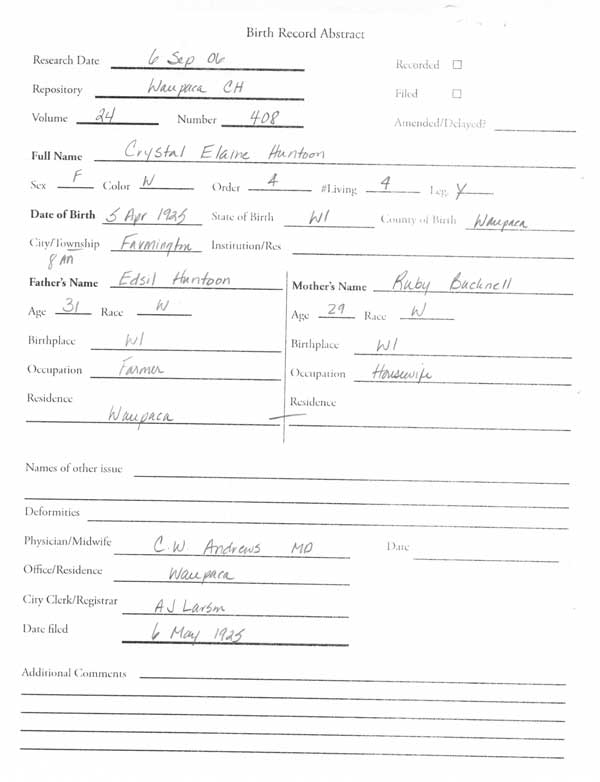 Birth Record Abstract
Research Date 6 Sep 06 Recorded
Repository Waupaca CH Filed
Volume 24 Number 408 Amended/Delayed?
Full Name Crystal Elaine Huntoon
Sex F Color W Order 4 #Living 4 Leg. Y
Date of Birth 5 Apr 1925 State of Birth WI County of Birth Waupaca
City/Township Farmington Institution/Res.
8 AM
Father's Name Edsil Huntoon Mother's Name Ruby Bucknell
Age 31 Race W Age 29 Race W
Birthplace WI Birthplace WI
Occupation Farmer Occupation Housewife
Residence Waupaca Residence
Names of other issue
Deformities
Physician/Midwife C.W. Andrews MD Date
Office/Residence Waupaca
City Clerk/Registrar AJ Larson
Date filed 6 May 1925
Additional Comments